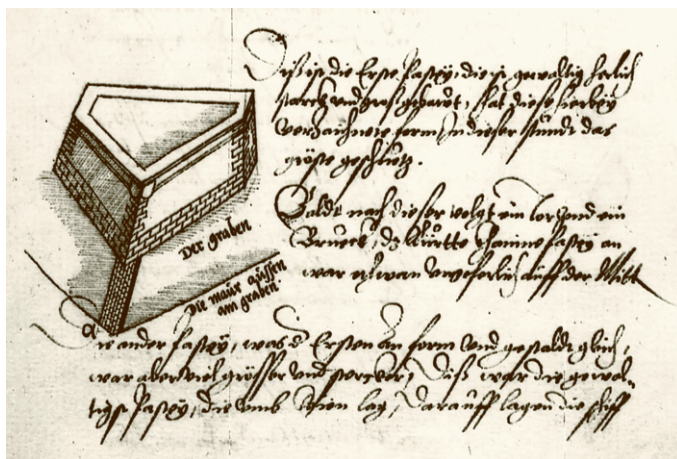 Diß ist die Erste Pastey, die ist gewalltig herlich
starck vnd groß gebawt, hat diese hierbey
verzaichnete form, In dieser stundt das
gröste geschütz.
Baldt nach dieser volgt ein Tor, und ein
Bruckh, die
war etwan ungeferlich auff der Mitt
Der graben
Die maur aussen
am graben.
Die ander Pastey, was d Ersten an form vnd gestaldt gleich,
war aber viel grösser vnd stercker, Diß war die gewal-
tigst Pastey, die vmb Wien lag, Darauff lagen die schiff